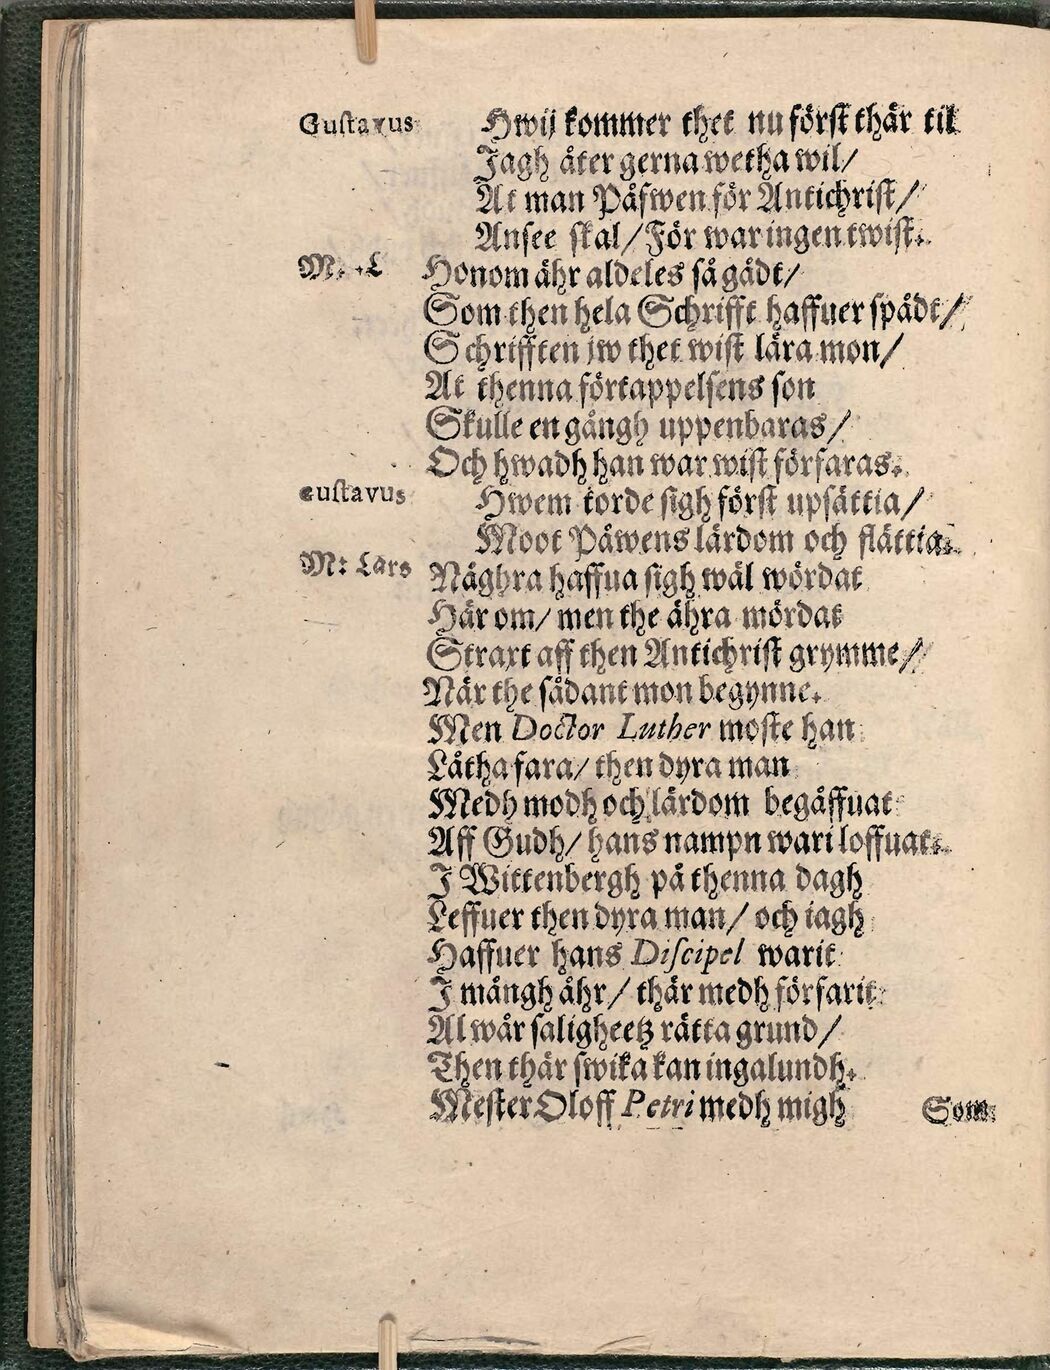 Gustavus Hwij kommer thet nu först thär til
Jagh åter gerna wetha wil/
At man Påfwen för Antichrist/
Ansee skal/ För war ingen twist.
M. L Honom ähr aldeles så gådt/
Som then hela Schrifft haffuer spådt/
Schrifften jw thet wist lära mon/
At thenna förtappelsens son
Skulle en gångh uppenbaras/
Och hwadh han war wist förfaras.
Gustavus Hwem torde sigh först upsättia/
Moot Påwens lärdom och flättia.
M: Lars Någhra haffua sigh wäl wördat
Här om/ men the ähra mördat
Straxt aff then Antichrist grymme/
När the sådant mon begynne.
Men Doctor Luther moste han
Låtha fara/ then dyra man
Medh modh och lärdom begåffuat
Aff Gudh/ hans nampn wari loffuat.
J Wittenbergh på thenna dagh
Leffuer then dyra man/ och iagh
Haffuer hans Discipel warit
J mångh åhr/ thär medh förfarit
Al wår saligheetz rätta grund/
Then thär swika kan ingalundh.
Mester Oloff Petri medh migh
Som